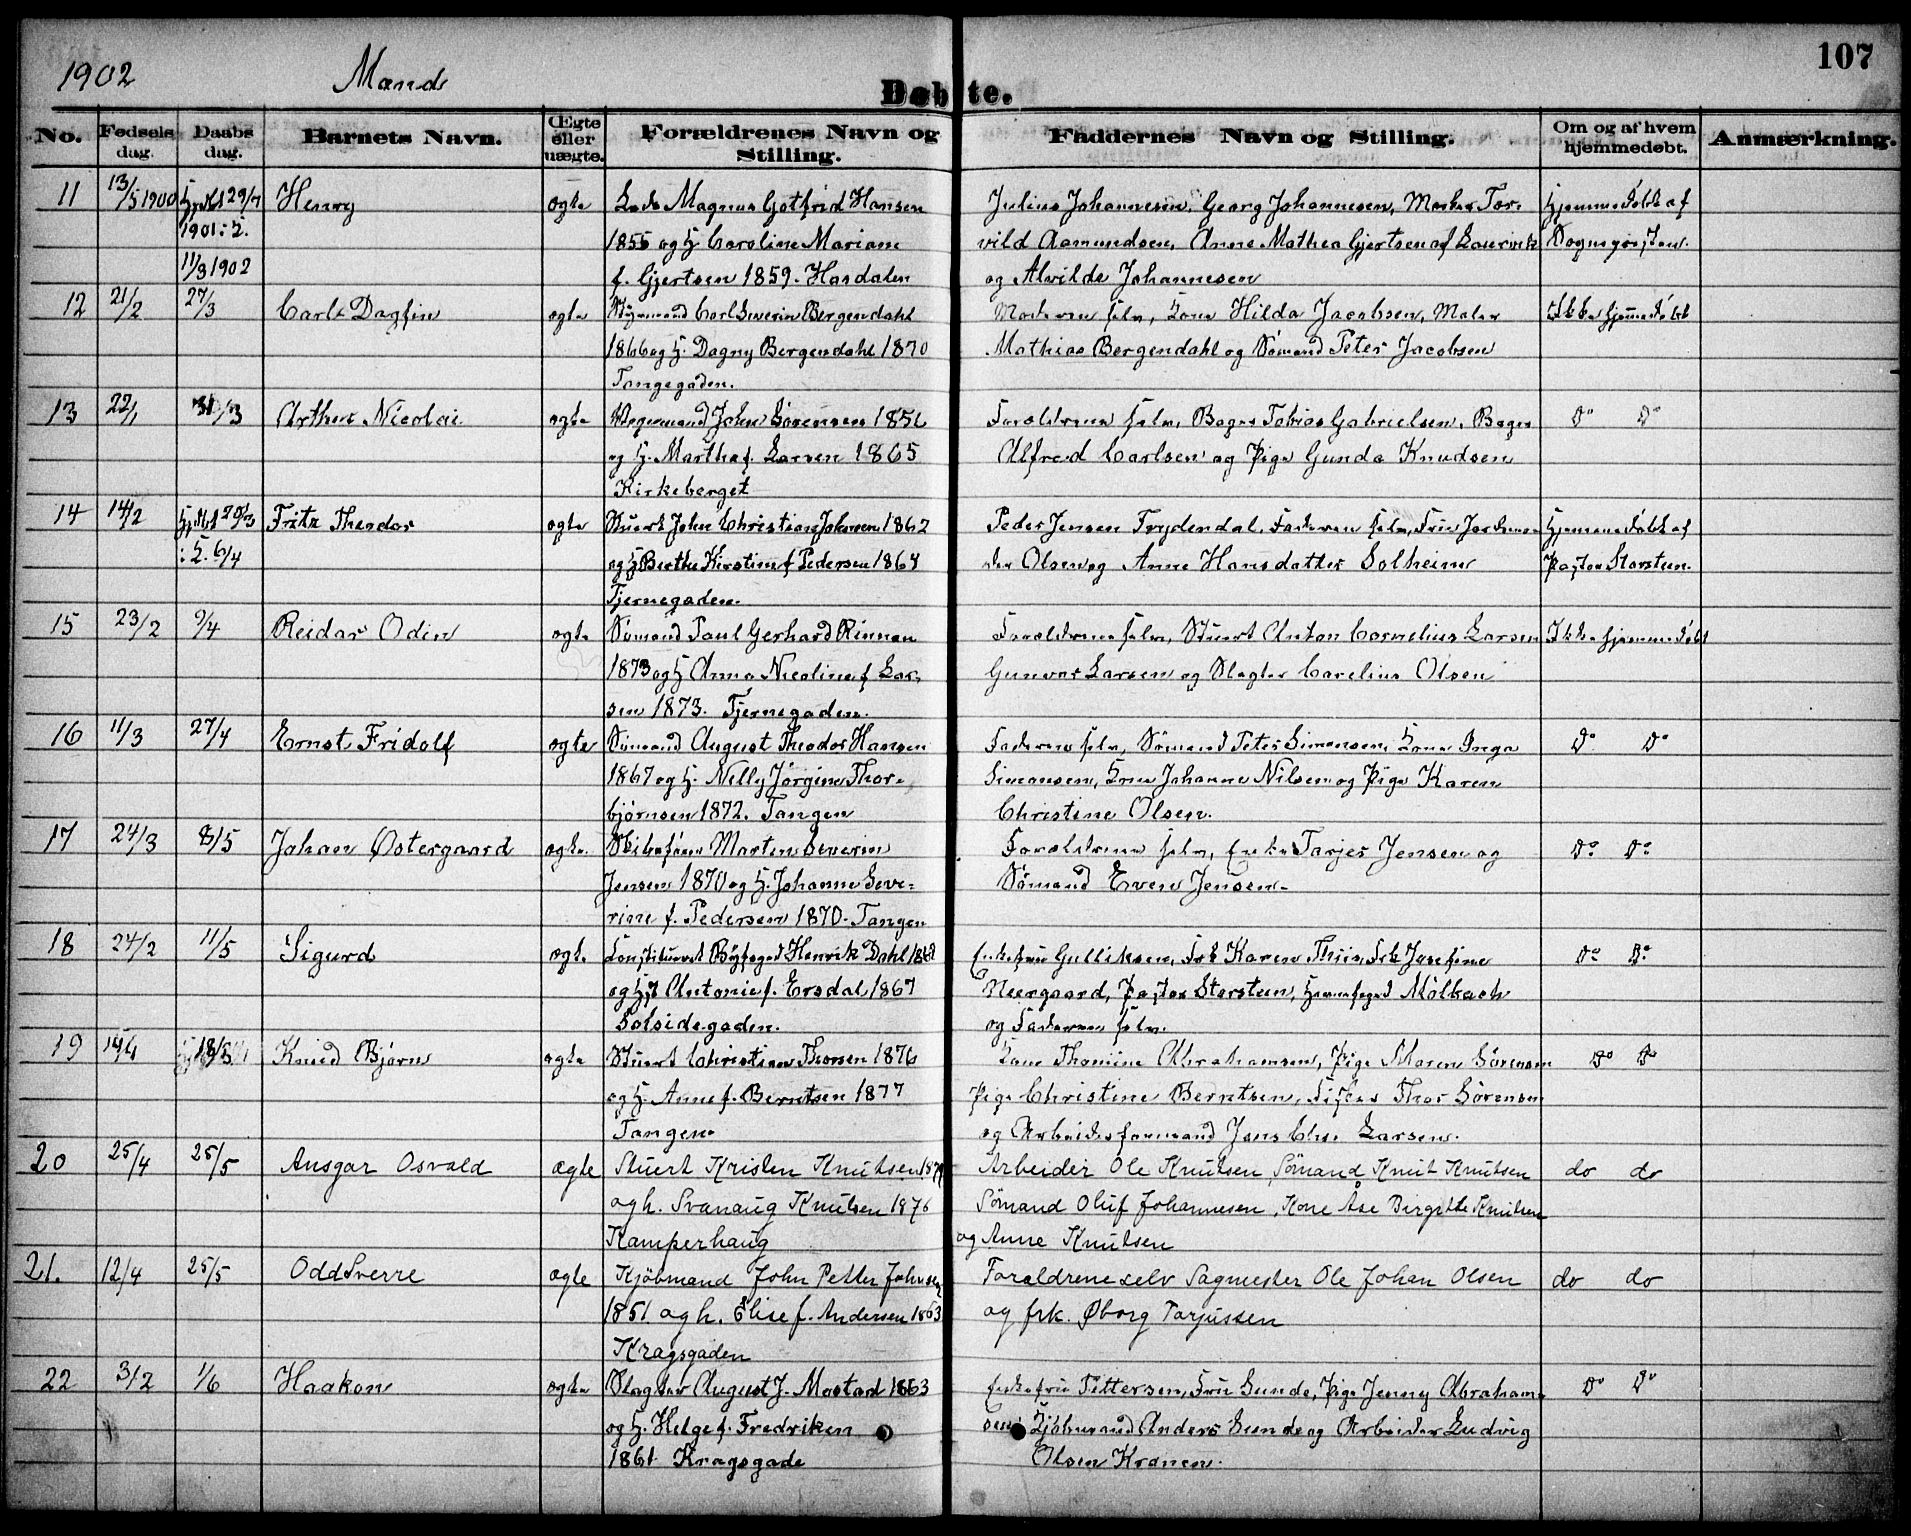 1902 Mænd Døbte. 107
No. Fødsels dag. Daabs dag. Barnets Navn. Ægte eller uægte. Forældrenes Navn og Stilling. Faddernes Navn og Stilling. Om og af hvem hjemmedøbt. Anmærkning.
11 13/5 1900 29/7 Henry ægte Magnus Gotfrid Hansen Julius Johannesen, Georg Johannesen, Tor- hjemmedøbt af
1901 i K. 1855 og H. Caroline Mariane vild Aamundsen, Anne Mathea Gjertsen af Sogneprysten.
11/3 1902 f. Gjertsen 1859. Hasdalen og Alvilde Johannesen
12 21/2 27/3 Carl Dagfin ægte Styrmand Carl Severin Bergendahl Moderen selv, Kone Hilda Jacobsen, Maler Ikke hjemmedøbt
1866 og H. Dagny Bergendahl 1870 Mathias Bergendahl og Sømand Peter Jacobsen
Tangegaden.
13 22/1 31/3 Arthur Nicolai ægte John Sørensen 1851 Forældrene selv, Bager Tobias Gabrielsen, Bager Do Do
og H. Martha f. Larsen 1865 Alfred Carlsen og Pige Gunda Knudsen
Kirkeberget
14 14/2 Hjdbt 29/3 Fritz Theodor ægte Stuert John Christian Johnsen 1862 Peder Jensen Frydendal, Faderen selv, Fru hjemmedøbt af
i K. 6/4 og H. Berthe Kirstine f. Pedersen 1864 Olsen og Anne Hansdatter Solheim Pastor Storsteen.
Tjernegaden.
15 23/2 9/4 Reidar Odin ægte Sømand Paul Gerhard Rinnan Forældrene selv, Stuert Anton Cornelius Larsen Ikke hjemmedøbt
1873 og H. Anna Nicoline f. Lar- Gunvor Larsen og Slagter Carelius Olsen
sen 1873. Tjernegaden.
16 11/3 27/4 Ernst Fridolf ægte Sømand August Theodor Hansen Faderen selv, Sømand Peter Simonsen, Kone Inga Do Do
1867 og H. Nelly Jørgine Thor- Simonsen, Kone Johanne Nilsen og Pige Karen
bjørnsen 1872. Tangen Christine Olsen.
17 24/3 8/5 Johan Østergaard ægte Skibsfører Martin Severin Forældrene selv, Enke Tarjer Jensen og Do Do
Jensen 1870 og H. Johanne Seve- Sømand Even Jensen.
rine f. Pedersen 1870. Tangen
18 24/2 11/5 Sigurd ægte Konstitueret Byfoged Henrik Dahl Enkefru Gulliksen, Frk Karen Thiis, Frk Josefine Do Do
og H. Antonie f. Ersdal 1867 Neergaard, Pastor Storsteen, Mølbach
Solsidegaden. og Faderen selv.
19 14/4 18/5 Knud Bjørn ægte Stuert Christian Thorsen 1876 Kone Thomine Abrahamsen, Pige Maren Sørensen Do Do
og H. Anne f. Berntsen 1877 Pige Christine Berntsen, Fisker Thor Sørensen
Tangen. og Arbeidsformand Jens Chr. Larsen.
20 25/4 25/5 Ansgar Osvald ægte Stuert Kristen Knutsen Arbeider Ole Knutsen, Sømand Knut Knutsen do do
og h. Svanaug Knutsen 1876 Sømand Oluf Johannesen, Kone Åse Birgitte Knutsen
Kamperhaug og Anne Knutsen
21. 12/4 25/5 Odd Sverre ægte Kjøbmand John Petter Johnsen Forældrene selv Sagmester Ole Johan Olsen do do
1851 og h. Elise f. Andersen 1863 og frk. Øborg Tarjussen
Kragsgaden
22 3/2 1/6 Haakon ægte Slagter August J. Mostad 1863 Enkefru Pettersen, Fru Sunde, Pige Jenny Abraham- Do Do
og H. Helge f. Fredriksen sen Kjøbmand Anders Sunde og Arbeider Ludvig
1861. Kragsgade Olsen Kranen.